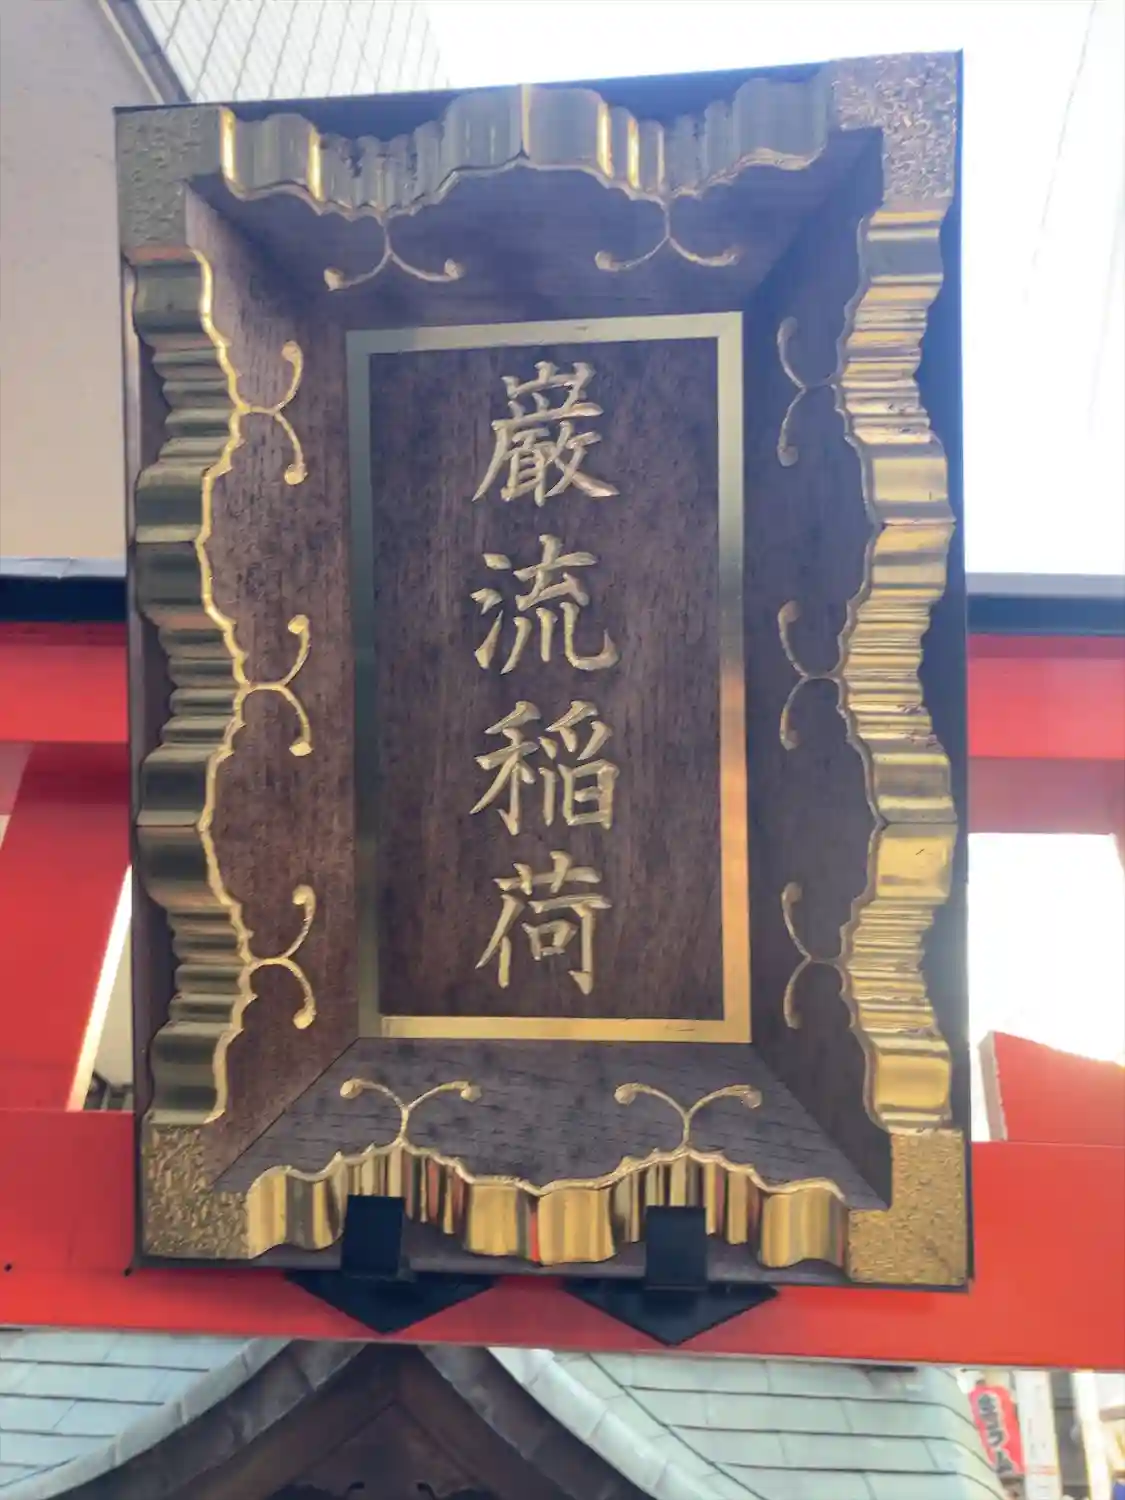 巌流稲荷